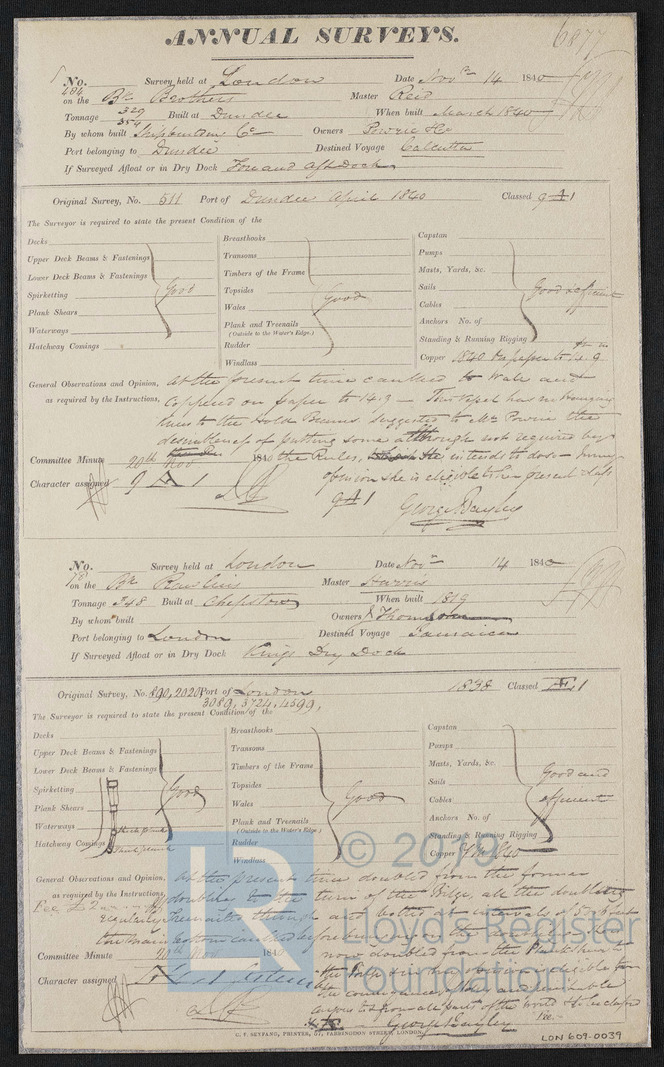 ANNUAL SURVEYS.
6877
No. 484 Survey held at London Date Novr 14 1840
on the Bk Brothers Master Reid
Tonnage 329 354 Built at Dundee When built March 1840
By whom built Shipbuilding Co Owners Powrie & Co
Port belonging to Dundee Destined Voyage Calcutta
If Surveyed Afloat or in Dry Dock
Original Survey, No. 511 Port of Dundee April 1840 Classed 9 A 1
The Surveyor is required to state the present Condition of the
Decks
Upper Deck Beams & Fastenings
Lower Deck Beams & Fastenings
Spirketting
Plank Shears
Waterways
Hatchway Comings
Good
Breasthooks
Transoms
Timbers of the Frame
Topsides
Wales
Plank and Treenails
(Outside to the Water's Edge.)
Rudder
Windlass
Good
Capstan
Pumps
Masts, Yards, &c.
Sails
Cables
Anchors No. of
Standing & Running Rigging
Good & efficient
Copper 1840
General Observations and Opinion, At the present time caulked to Wale and
as required by the Instructions, Coppered on paper to 14.9 This Vessel has no Hanging
knees to the Hold Beams suggested to Mr Powrie the
of putting some although not required by
Committee Minute 20th Nov 1840 the Rules, She intends to do so
Character assigned 9 A 1 opinion she is eligible to her present class
9 A 1 George Bayley
No. 78 Survey held at London Date Novr 14 1840
on the Bk Rawlins Master Harris
Tonnage 348 Built at Chepstow When built 1819
By whom built Owners J Thomson
Port belonging to London Destined Voyage Jamaica
If Surveyed Afloat or in Dry Dock Kings Dry Dock
Original Survey, No. 890, 2020, Port of London 1838 Classed Æ 1
3089, 3724, 4599,
The Surveyor is required to state the present Condition of the
Decks
Upper Deck Beams & Fastenings
Lower Deck Beams & Fastenings
Spirketting
Plank Shears
Waterways
Hatchway Comings
Good
Breasthooks
Transoms
Timbers of the Frame
Topsides
Wales
Plank and Treenails
(Outside to the Water's Edge.)
Rudder
Windlass
Good
Capstan
Pumps
Masts, Yards, &c.
Sails
Cables
Anchors No. of
Standing & Running Rigging
Good and
efficient
Copper
General Observations and Opinion, At the present time doubled from the former
as required by the Instructions, doubling to the turn of the Bilge, all the doubling
Fee £2 regularly Treenailed through and bolted at intervals of 5 feet
the main bottom caulked before
Committee Minute 20th Nov 1840 now doubled from the Plank sheer
Character assigned
the conveyance of
cargoes to & from all parts of the World
George Bayley
G. F. SEYFANG, PRINTER, 57, FARRINGDON STREET, LONDON.
LON 609-0039
© 2019
LR
Lloyd's Register
Foundation